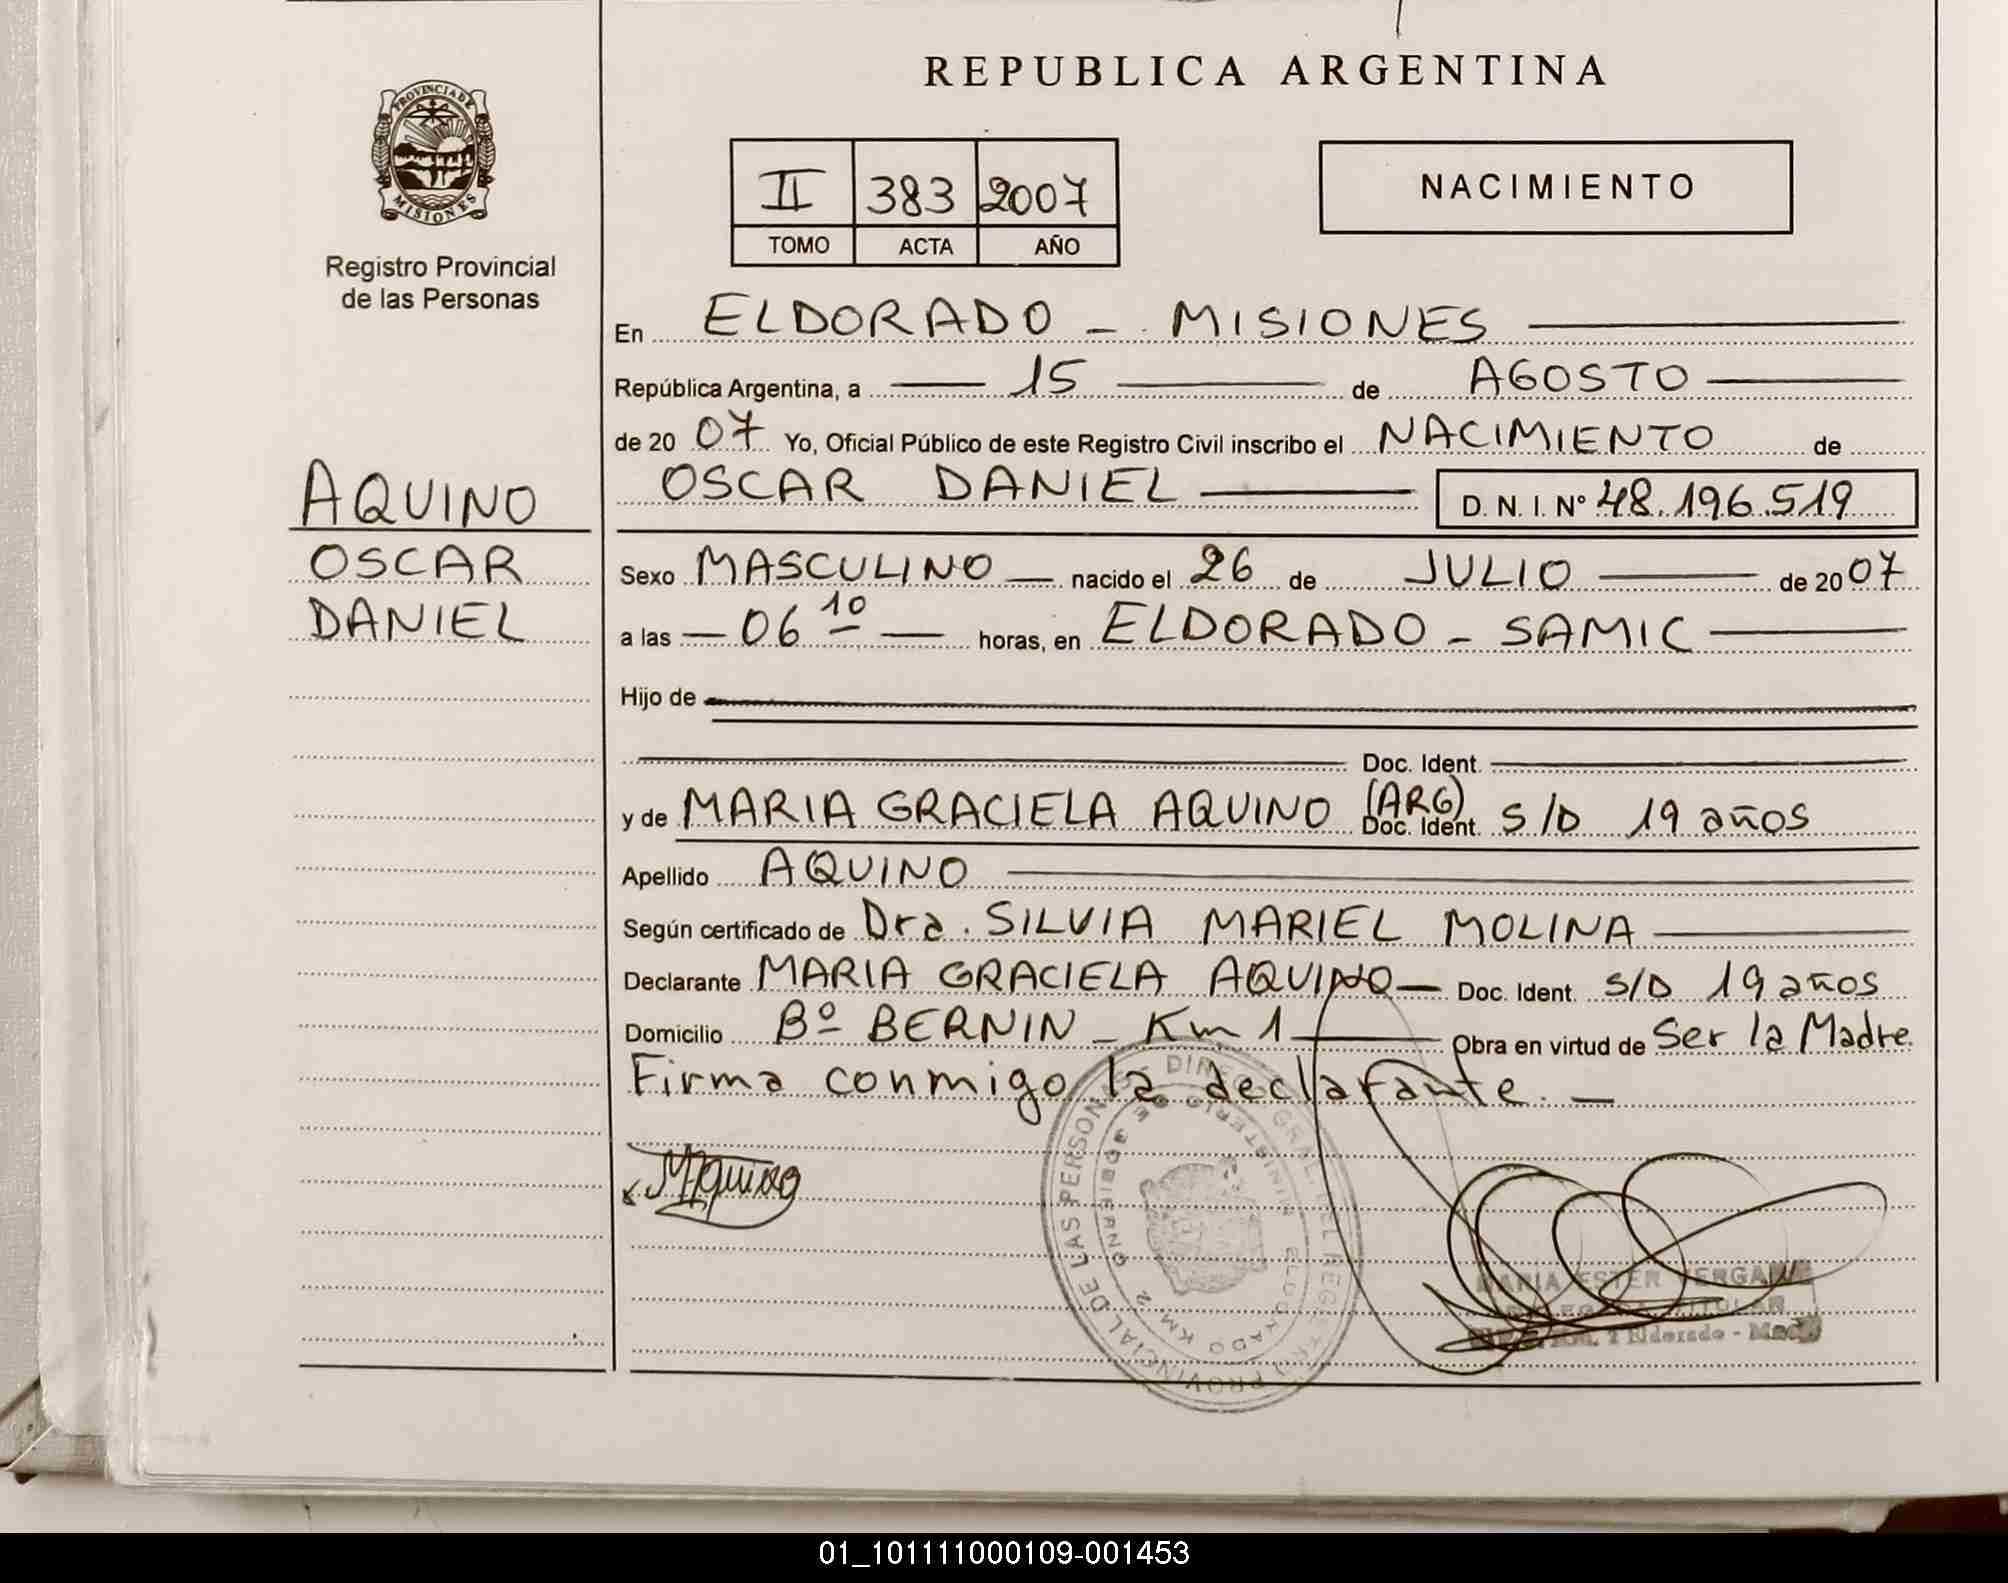 REPUBLICA ARGENTINA
PROVINCIA DE
MISIONES
Registro Provincial
de las Personas
II 383 2007
TOMO ACTA AÑO
NACIMIENTO
En ELDORADO - MISIONES
República Argentina, a 15 de AGOSTO
de 20 07 Yo, Oficial Público de este Registro Civil inscribo el NACIMIENTO de
OSCAR DANIEL D. N. I. Nº 48.196.519
AQUINO
OSCAR
DANIEL
Sexo MASCULINO nacido el 26 de JULIO de 20 07
a las 06 10 horas, en ELDORADO - SAMIC
Hijo de
Doc. Ident.
y de MARIA GRACIELA AQUINO (ARG) Doc. Ident. S/D 19 años
Apellido AQUINO
Según certificado de Dra. SILVIA MARIEL MOLINA
Declarante MARIA GRACIELA AQUINO Doc. Ident. S/D 19 años
Domicilio Bº BERNIN - Km 1 Obra en virtud de Ser la Madre.
Firma conmigo la declarante. —
MAquino
DIREC. GRAL. DEL REGISTRO PROVINCIAL DE LAS PERSONAS
MINISTERIO DE GOBIERNO
ELDORADO KM 2
MARIA ESTER
TITULAR
Eldorado
01_101111000109-001453